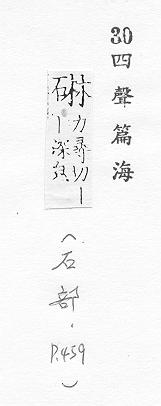 30 四聲篇海
碄力尋切丨
丨深皃
（石部．P.459）